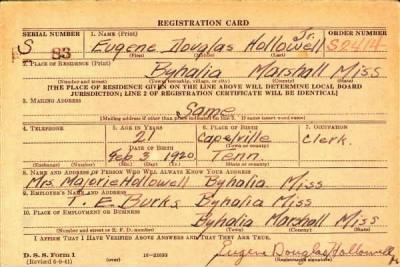 REGISTRATION CARD
SERIAL NUMBER 1. NAME (Print) Jr. ORDER NUMBER
S 83 Eugene Douglas Hollowell S2414
(First) (Middle) (Last)
2. PLACE OF RESIDENCE (Print)
Byhalia Marshall Miss
(Number and street) (Town, township, village, or city) (County) (State)
[THE PLACE OF RESIDENCE GIVEN ON THE LINE ABOVE WILL DETERMINE LOCAL BOARD
JURISDICTION; LINE 2 OF REGISTRATION CERTIFICATE WILL BE IDENTICAL]
3. MAILING ADDRESS
Same
[Mailing address if other than place indicated on line 2. If same insert word same]
4. TELEPHONE 5. AGE IN YEARS 6. PLACE OF BIRTH 7. OCCUPATION
21 Capelville Clerk.
DATE OF BIRTH (Town or county)
Feb 3 1920 Tenn
(Exchange) (Number) (Mo.) (Day) (Yr.) (State or country)
8. NAME AND ADDRESS OF PERSON WHO WILL ALWAYS KNOW YOUR ADDRESS
Mrs. Majorie Hollowell Byhalia Miss
9. EMPLOYER'S NAME AND ADDRESS
T. E. Burks Byhalia Miss
10. PLACE OF EMPLOYMENT OR BUSINESS
Byhalia Marshall Miss
(Number and street or R. F. D. number) (Town) (County) (State)
I AFFIRM THAT I HAVE VERIFIED ABOVE ANSWERS AND THAT THEY ARE TRUE.
D. S. S. Form 1
(Revised 6-9-41) (over) Eugene Douglas Hollowell Jr